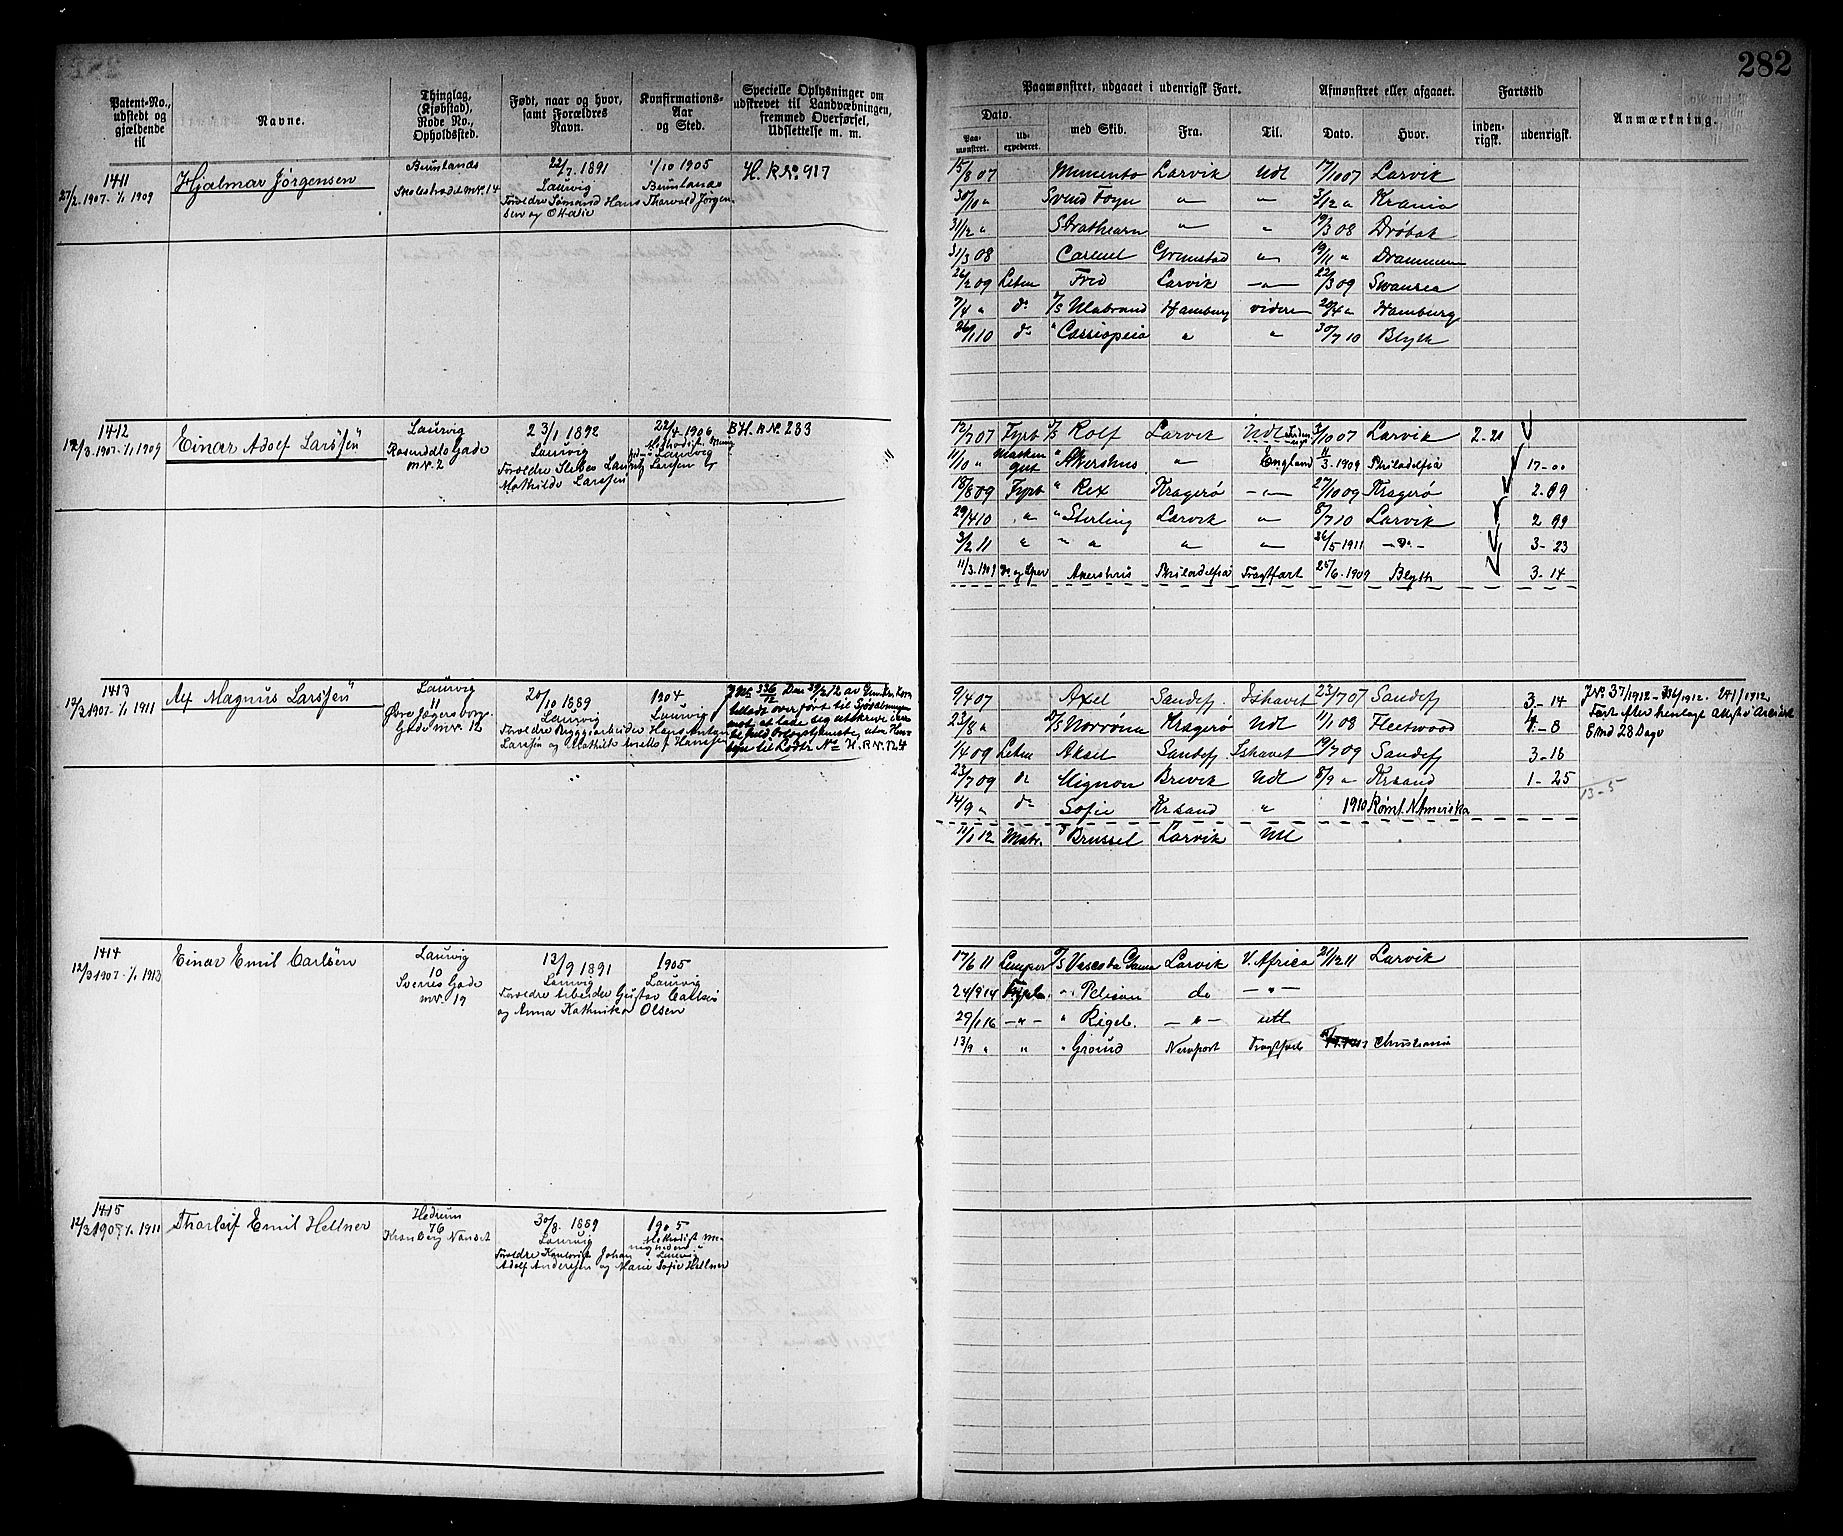 282
Patent-No., udstedt og gjældende til
Navne.
Thinglag, (Kjøbstad), Rode No., Opholdssted.
Født, naar og hvor, samt Forældres Navn.
Konfirmations-Aar og Sted.
Specielle Oplysninger om udskrevet til Landvæbningen, fremmed Overførsel, Udslettelse m. m.
Paamønstret, udgaaet i udenrigsk Fart.
Dato.
Paamønstret.
Udexpederet.
med Skib.
Fra.
Til.
Afmønstret eller afgaaet.
Dato.
Hvor.
Fartstid
indenrigsk.
udenrigsk.
Anmærkning.
1411
27/2 1907-1/1 1909
Hjalmar Jørgensen
22/7 1891
Laurvig
Forældre Sømand Hans
1/10 1905
Thorvald Jørgen-
H. R No. 917
15/8 07 Larvik Udt 17/10 07 Larvik
30/10 " Svend Foyn " " 3/12 " Krania
31/12 " Strathearn " " 19/3 08 Drøbak
31/3 08 Carmel Grimstad " 19/11 " Drammen
26/2 09 Letm Frid Larvik -"- 22/3 09 Swansea
7/4 " do Ulabrand Hamburg videre 20/4 " Hamburg
26/1 10 do " Cassiopeia " " 30/7 10 Blyth
1412
12/3 1907-1/1 1909
Einar Adolf Larssen
Laurvig
2
No. 2
23/1 1892
Laurvig
Mathilde Larssen
22/4 1906
Methodist Menig
Laurvig
B H. R No. 283
12/7 07 Fyrb Rolf Larvik Udt 3/10 07 Larvik 2-21
11/10 " " Akershus " England 11/3-1909 Philadelfia 17-00
18/8 09 Fyrb " Rex Kragerø -"- 27/10 09 Kragerø 2-09
29/4 10 " " Sterling Larvik " 8/7 10 Larvik 2 09
3/2 11 " " " " " 26/5-1911 -do- 3-23
11/3.1909 Akershus Philadelfia Fragtfart 25/6-1909 Blyth 3-14
1413
12/3 1907-1/1 1911
Magnus Larssen
Laurvig
11
Øvre Jægersborg-
Gade nr. 12
20/10 1889
Laurvig
Forældre Bryggearbeider Hans Anton
1904
Laurvig
H. R No. 124
9/4 07 Axel Sandefj. Ishavet 23/7 07 Sandef 3-14
23/8 " Norrøna Kragerø Udt 11/1 08 Fleetwood 4-8
1/4 09 Letm Aksel Sandefj Ishavet 19/7 09 Sandefj 3-18
23/7 09 do Mignon Brevik Udt 8/9 " Krsand 1-25
14/9 " do Sofie Krsand " 1910 Rømt N Amerika
11/1 12 Matr. Brussel Larvik Udt
JNo 37/1912-336/1912. 24/1/1912.
13-5
1414
12/3 1907-1/1 1913
Einar Emil Carlsen
Laurvig
10
Sverres Gade
nr. 19
12/9 1891
Laurvig
Forældre Arbeider Gustav Carlsen
og Anna Kathrika Olsen
1905
Laurvig
17/6 11 Lemper Vasco da Gama Larvik V. Africa 21/12 11 Larvik
24/9 14 Fyrb. " Pelican do -"-
29/1 16 -"- " Rigel. -"- utl
13/9 " " " Grõund Newport Fragtfart Christiania
1415
12/3 1907-1/1 1911
Thorleif Emil Hellner
Hedrum
76
Kronberg Nanset
30/8. 1889
Laurvig
Forældre Johan
Adolf Anderssen og Marie Sofie Hellner
1905
Methodist Me-
nigheden
Laurvig